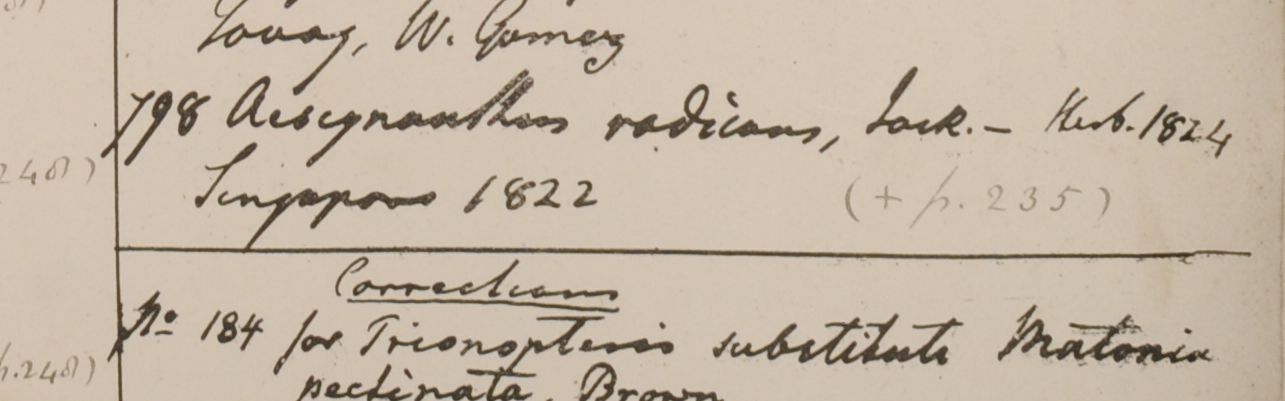 Tavoy, W. Gomez
798 Aeschynanthus radicans, Jack. – Herb. 1824
Singapore 1822 (+ p. 235)
Corrections
No 184 for Trionopteris substitute Matonia
pectinata, Brown
p. 248)